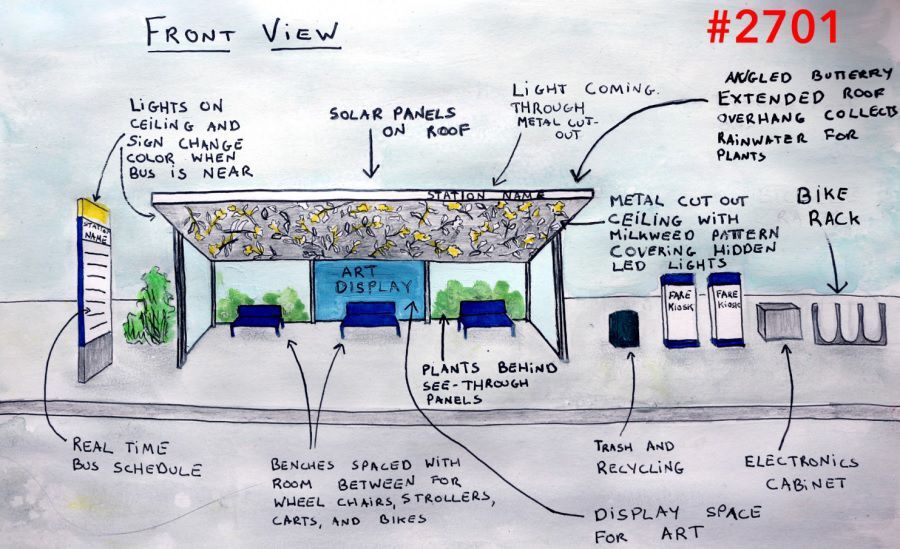 FRONT VIEW
#2701
LIGHTS ON
CEILING AND
SIGN CHANGE
COLOR WHEN
BUS IS NEAR
SOLAR PANELS
ON ROOF
LIGHT COMING
THROUGH
METAL CUT-
OUT
ANGLED BUTTERRY
EXTENDED ROOF
OVERHANG COLLECTS
RAINWATER FOR
PLANTS
STATION NAME
METAL CUT OUT
CEILING WITH
MILKWEED PATTERN
COVERING HIDDEN
LED LIGHTS
BIKE
RACK
STATION
NAME
ART
DISPLAY
FARE
KIOSK
FARE
KIOSK
PLANTS BEHIND
SEE-THROUGH
PANELS
REAL TIME
BUS SCHEDULE
BENCHES SPACED WITH
ROOM BETWEEN FOR
WHEEL CHAIRS, STROLLERS,
CARTS, AND BIKES
TRASH AND
RECYCLING
ELECTRONICS
CABINET
DISPLAY SPACE
FOR ART